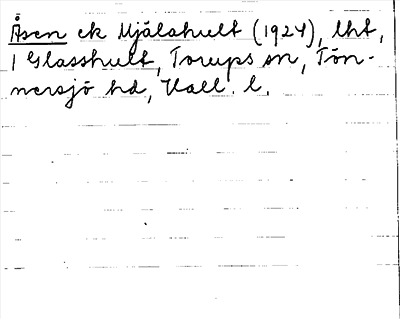 Åsen ek Mjälahult (1924), lht,
1 Glasshult, Torups sn, Tön-
nersjö hd, Hall. l.